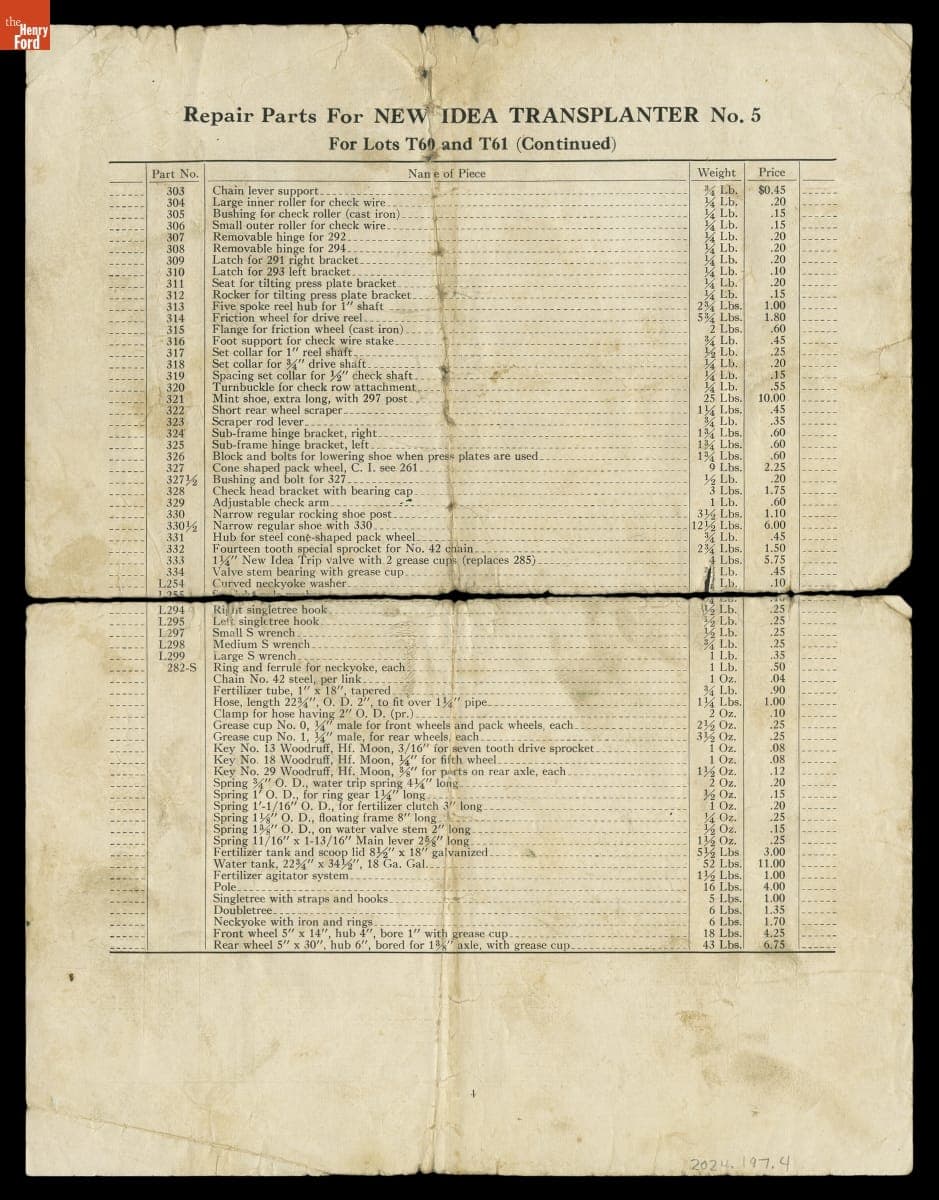 the
Henry
Ford
Repair Parts For NEW IDEA TRANSPLANTER No. 5
For Lots T60 and T61 (Continued)
Part No. Name of Piece Weight Price
303 Chain lever support ¾ Lb. $0.45
304 Large inner roller for check wire ¼ Lb. .20
305 Bushing for check roller (cast iron) ¼ Lb. .15
306 Small outer roller for check wire ¼ Lb. .15
307 Removable hinge for 292 ¼ Lb. .20
308 Removable hinge for 294 ¼ Lb. .20
309 Latch for 291 right bracket ¼ Lb. .20
310 Latch for 293 left bracket ¼ Lb. .10
311 Seat for tilting press plate bracket ¼ Lb. .20
312 Rocker for tilting press plate bracket ¼ Lb. .15
313 Five spoke reel hub for 1" shaft 2¾ Lbs. 1.00
314 Friction wheel for drive reel 5¾ Lbs. 1.80
315 Flange for friction wheel (cast iron) 2 Lbs. .60
316 Foot support for check wire stake ¾ Lb. .45
317 Set collar for 1" reel shaft ½ Lb. .25
318 Set collar for ¾" drive shaft ¼ Lb. .20
319 Spacing set collar for ½" check shaft ¼ Lb. .15
320 Turnbuckle for check row attachment ¼ Lb. .55
321 Mint shoe, extra long, with 297 post 25 Lbs. 10.00
322 Short rear wheel scraper 1¼ Lbs. .45
323 Scraper rod lever ¾ Lb. .35
324 Sub-frame hinge bracket, right 1¾ Lbs. .60
325 Sub-frame hinge bracket, left 1¾ Lbs. .60
326 Block and bolts for lowering shoe when press plates are used 1¾ Lbs. .60
327 Cone shaped pack wheel, C. I. see 261 9 Lbs. 2.25
327½ Bushing and bolt for 327 ½ Lb. .20
328 Check head bracket with bearing cap 3 Lbs. 1.75
329 Adjustable check arm 1 Lb. .60
330 Narrow regular rocking shoe post 3½ Lbs. 1.10
330½ Narrow regular shoe with 330 12½ Lbs. 6.00
331 Hub for steel cone-shaped pack wheel ¾ Lb. .45
332 Fourteen tooth special sprocket for No. 42 chain 2¾ Lbs. 1.50
333 1¼" New Idea Trip valve with 2 grease cups (replaces 285) 4 Lbs. 5.75
334 Valve stem bearing with grease cup Lb. .45
L254 Curved neckyoke washer Lb. .10
L255
L294 Right singletree hook ½ Lb. .25
L295 Left singletree hook ½ Lb. .25
L297 Small S wrench ½ Lb. .25
L298 Medium S wrench ¾ Lb. .25
L299 Large S wrench 1 Lb. .35
282-S Ring and ferrule for neckyoke, each 1 Lb. .50
Chain No. 42 steel, per link 1 Oz. .04
Fertilizer tube, 1" x 18", tapered ¾ Lb. .90
Hose, length 22¾", O. D. 2", to fit over 1¼" pipe 1¼ Lbs. 1.00
Clamp for hose having 2" O. D. (pr.) 2 Oz. .10
Grease cup No. 0, ¼" male for front wheels and pack wheels, each 2½ Oz. .25
Grease cup No. 1, ¼" male, for rear wheels, each 3½ Oz. .25
Key No. 13 Woodruff, Hf. Moon, 3/16" for seven tooth drive sprocket 1 Oz. .08
Key No. 18 Woodruff, Hf. Moon, ¼" for fifth wheel 1 Oz. .08
Key No. 29 Woodruff, Hf. Moon, ⅜" for parts on rear axle, each 1½ Oz. .12
Spring ¾" O. D., water trip spring 4¼" long 2 Oz. .20
Spring 1" O. D., for ring gear 1¼" long ½ Oz. .15
Spring 1'-1/16" O. D., for fertilizer clutch 3" long 1 Oz. .20
Spring 1⅛" O. D., floating frame 8" long ¼ Oz. .25
Spring 1⅜" O. D., on water valve stem 2" long ½ Oz. .15
Spring 11/16" x 1-13/16" Main lever 2⅝" long 1½ Oz. .25
Fertilizer tank and scoop lid 8½" x 18" galvanized 5½ Lbs 3.00
Water tank, 22¾" x 34½", 18 Ga. Gal. 52 Lbs. 11.00
Fertilizer agitator system 1½ Lbs. 1.00
Pole 16 Lbs. 4.00
Singletree with straps and hooks 5 Lbs. 1.00
Doubletree 6 Lbs. 1.35
Neckyoke with iron and rings 6 Lbs. 1.70
Front wheel 5" x 14", hub 4", bore 1" with grease cup 18 Lbs. 4.25
Rear wheel 5" x 30", hub 6", bored for 1⅜" axle, with grease cup 43 Lbs. 6.75
4
2024.197.4